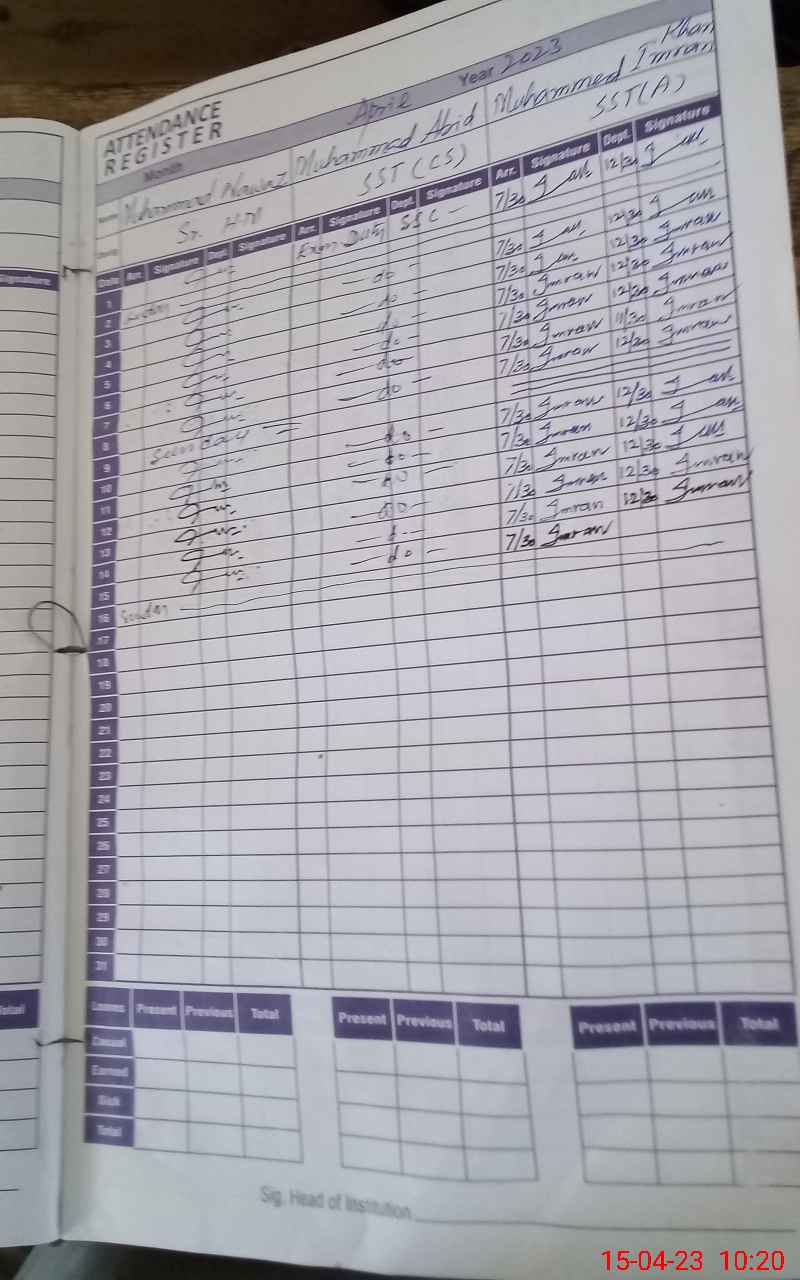 ATTENDANCE
REGISTER
Month April Year 2023
Name Muhammad Nawaz Muhammad Abid Muhammed Imran Khan
Sr. H.M SST (CS) SST(A)
Date Arr. Signature Dept. Signature Arr. Signature Dept. Signature Arr. Signature Dept. Signature
1 Exam Duty SSC - 7/30 12/30
2
3 - do - 7/30 12/30
4 - do - 7/30 12/30 Imran
5 - do - 7/30 Imran 12/30 Imran
6 - do - 7/30 Imran 12/30 Imran
7 - do - 7/30 Imran 11/30 Imran
8 - do - 7/30 Imran 12/30 Imran
9 Sunday
10 - do - 7/30 Imran 12/30
11 - do - 7/30 Imran 12/30
12 - do - 7/30 Imran 12/30
13 - do - 7/30 Imran 12/30 Imran
14 - do - 7/30 Imran 12/30 Imran
15 - do - 7/30 Imran
16
17
18
19
20
21
22
23
24
25
26
27
28
29
30
31
Leaves Present Previous Total Present Previous Total Present Previous Total
Casual
Earned
Sick
Total
Sig. Head of Institution
Signature
Total
15-04-23 10:20